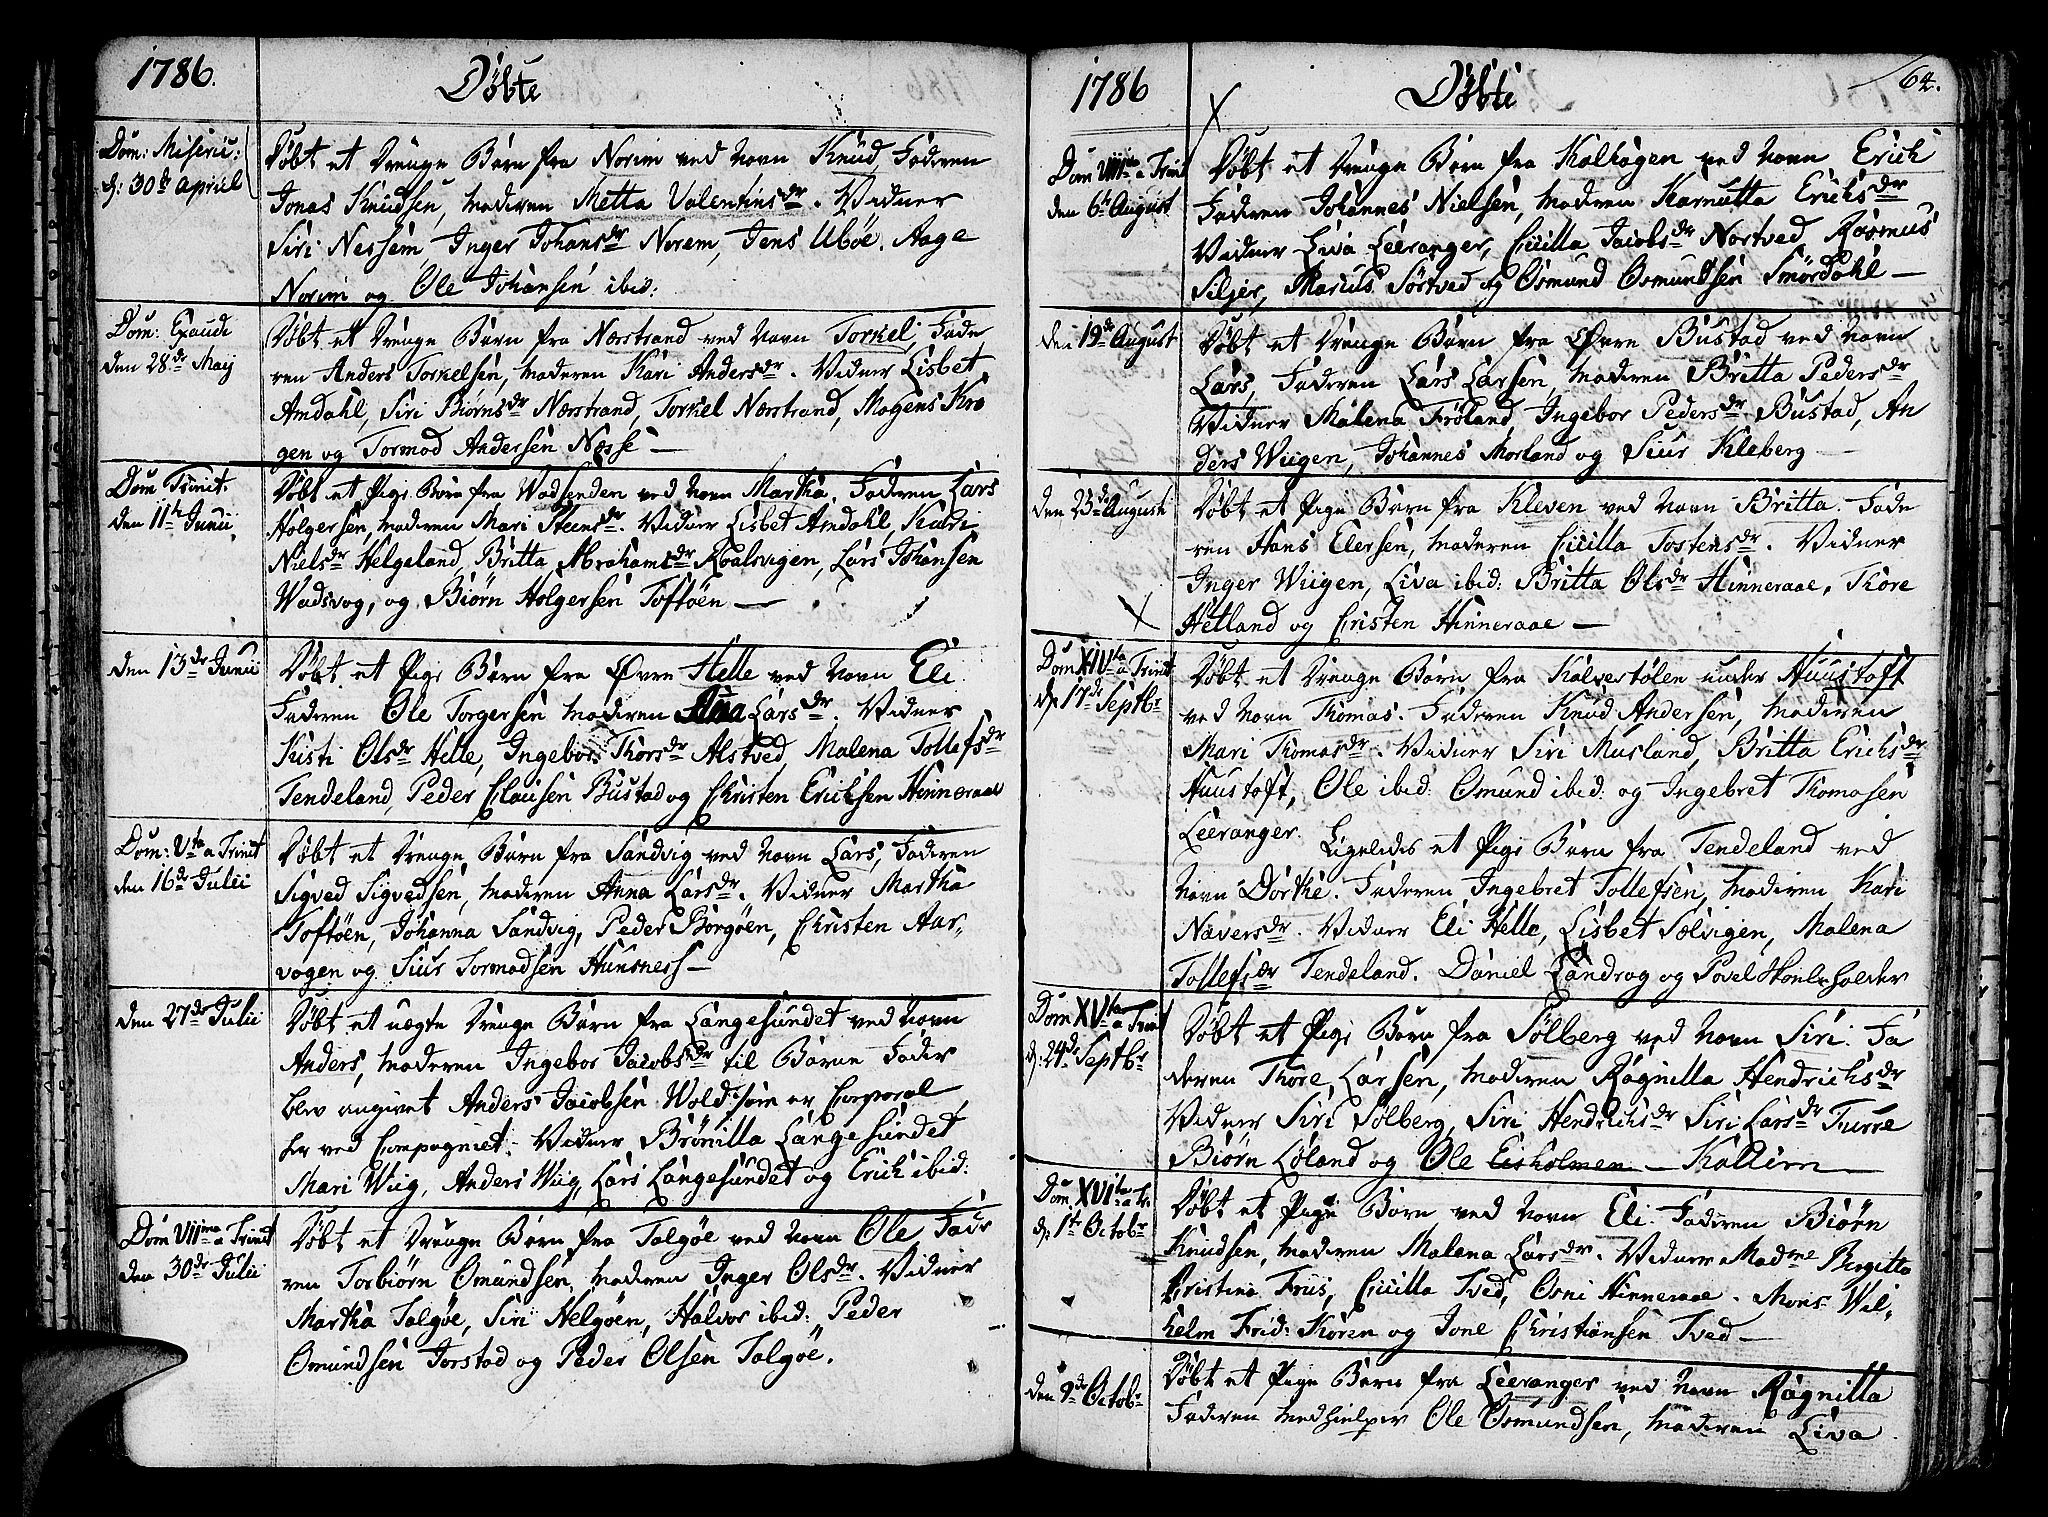 1786.
Døbte
Dom: Miseric:
d: 30de April
Døbt et Drenge Barn fra Norim ved Navn Knud, Faderen
Jonas Knudsen, Moderen Metta Valentinsdr. Vidner
Siri Nessem, Inger Johansdr Norem, Jens Ubøe. Aage
Norim og Ole Johansen ibid:
Dom: Exaudi
den 28de May
Døbt et Drenge Barn fra Nærstrand ved Navn Torkel, Fade
ren Anders Torkelsen, Moderen Kari Andersdr. Vidner Lisbet
Amdahl, Siri Biørnsdr Nærstrand, Torkel Nærstrand, Mogens Kro
gen og Tormod Andersen Næsse
Dom Trinit.
den 11te Junii
Døbt et Pige Barn fra Vadsenden ved Navn Martha. Faderen Lars
Holgersen, Moderen Mari Steensdr. Vidner Lisbet Amdahl, Kari
Nielsdr Helgeland, Britta Abrahamsdr Roalsvigen, Lars Johansen
Wadsvog, og Biørn Holgersen Toftøen
den 13de Junii
Døbt et Pige Barn fra Øvre Helle ved Navn Eli
Faderen Ole Torgersen Moderen Anna Larsdr. Vidner
Kisti Olsdr Helle, Ingebor Thorsdr Alsted, Malena Tollefsdr
Tendeland, Peder Clausen Bustad og Christen Erichsen Hinneraae
Dom: Vta a Trinit
den 16de Julii
Døbt et Drenge Barn fra Sandvig ved Navn Lars, Faderen
Sigved Sigvedsen, Moderen Anna Larsdr. Vidner Martha
Toftøen, Johanna Sandvig, Peder Borgøen, Christen Aar,
vogen og Siur Tormodsen Hunsness
den 27de Julii
Døbt et uægte Drenge Barn fra Langesundet ved Navn
Anders, Moderen Ingebor Jacobsdr til Barne Fader
blev angivet Anders Jacobsen Wold, som er Corporal
her ved Compagniet. Vidner Brønilla Langesundet
Mari Wiig, Anders Wiig, Lars Langesundet og Erich ibid:
Dom VIIma a Trinit
den 30de Julii
Døbt et Drenge Barn fra Talgøe ved Navn Ole Fade
ren Torbiørn Omundsen, Moderen Inger Olsdr. Vidner
Martha Talgøe, Siri Helgøen, Halvor ibid: Peder
Omundsen Jorstad og Peder Olsen Talgøe.
1786
Døbte
64.
Dom VIIIva a Trinit
den 6te August
Døbt et Drenge Barn fra Kolhagen ved Navn Erich
Faderen Johannes Nielsen, Moderen Karnutta Erichsdr
Vidner Liva Leeranger, Cicilla Jacobsdr Nortved, Rasmus
Siljer, Marius Sørtved og Osmund Osmundsen Smørdahl
den 19de August
Døbt et Drenge Barn fra Øvre Bustad ved Navn
Lars, Faderen Lars Larsen, Moderen Britta Pedersdr
Vidner Malena Frøland, Ingebor Pedersdr Bustad, An
ders Wiigen, Johannes Morland og Siur Kleberg
den 23de August
Døbt et Pige Barn fra Kleven ved Navn Britta. Fade
ren Hans Elersen, Moderen Cicilla Tostensdr. Vidner
Inger Wiigen, Liva ibid: Britta Olsdr Hinneraae, Thore
Hetland og Cristen Hinneraae
Dom XIVta a Trinit
d: 17de Septbr
Døbt et Drenge Barn fra Kalvestølen under Huustoft
ved Navn Thomas. Faderen Knud Andersen, Moderen
Mari Thomasdr. Vidner Siri Musland, Britta Erichsdr
Huustoft, Ole ibid: Omund ibid: og Ingebret Thomasen
Leeranger. Ligeledes et Pige Barn fra Tendeland ved
Navn Dorthe. Faderen Ingebret Tollefsen, Moderen Kari
Naversdr. Vidner Eli Helle, Lisbet Sølvigen, Malena
Tollefsdr Tendeland. Daniel Landrog og Povel Skoeleholder
Dom XVta a Trinit
d: 24de Septbr
Døbt et Pige Barn fra Solberg ved Navn Siri. Fa
deren Thore Larsen, Moderen Ragnilla Hendrichsdr
Vidner Siri Solberg, Siri Hendrichsdr Siri Larsdr Furre
Biørn Løland og Ole Eisholmen Kaldern
Dom. XVIta a Tr.
d: 1te Octobr
Døbt et Pige Barn ved Navn Eli. Faderen Biørn
Knudsen, Moderen Malena Larsdr. Vidner Madme Birgitta
Christina Friis, Cicilla Tved, Osni Hinneraae. Mons: Wil,
helm Frid: Koren og Jone Christiansen Tved
den 9de Octobr
Døbt et Pige Barn fra Leeranger ved Navn Ragnilla
Faderen Medhielper Ole Osmundsen, Moderen Liva